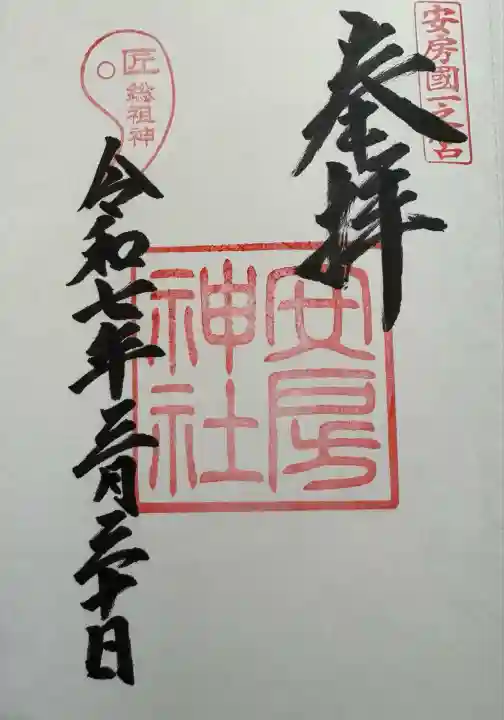 安房國一之宮
奉拝
安房
神社
匠
総祖神
令和七年三月三十日